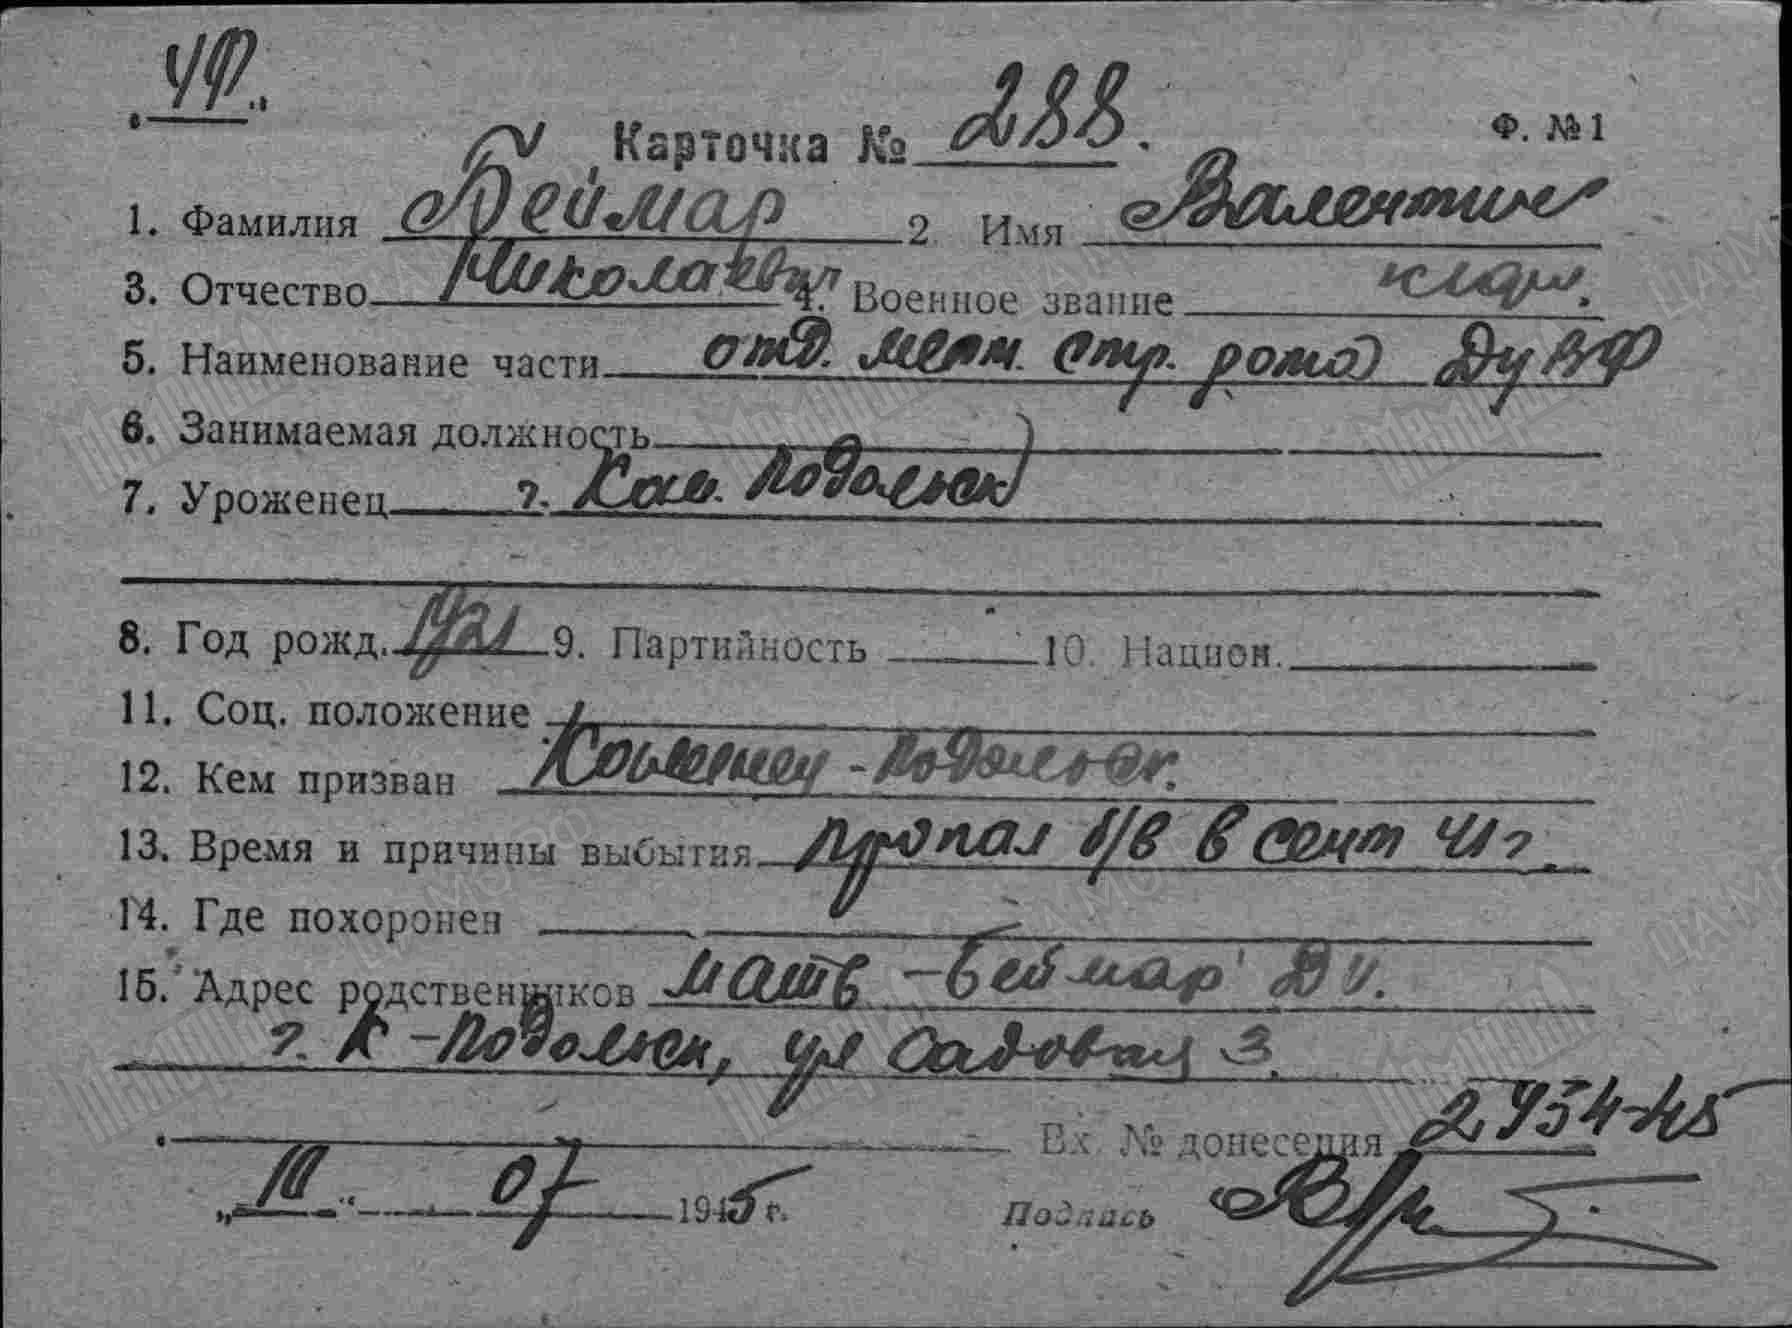 ЧФ
Карточка № 288.
Ф. №1
1. Фамилия Беймар 2. Имя Валентин
3. Отчество Николаевич 4. Военное звание
5. Наименование части отд. мест. стр. рота ДуВФ
6. Занимаемая должность
7. Уроженец г. Кам. Подольск
8. Год рожд. 1921 9. Партийность 10. Национ.
11. Соц. положение
12. Кем призван Каменец-Подольск.
13. Время и причины выбытия пропал б/в в сент 41г.
14. Где похоронен
15. Адрес родственников мать - Беймар
г. К-Подольск, ул Садовая 3.
Вх. № донесения 2934-45
„10“ 07 1945 г. Подпись